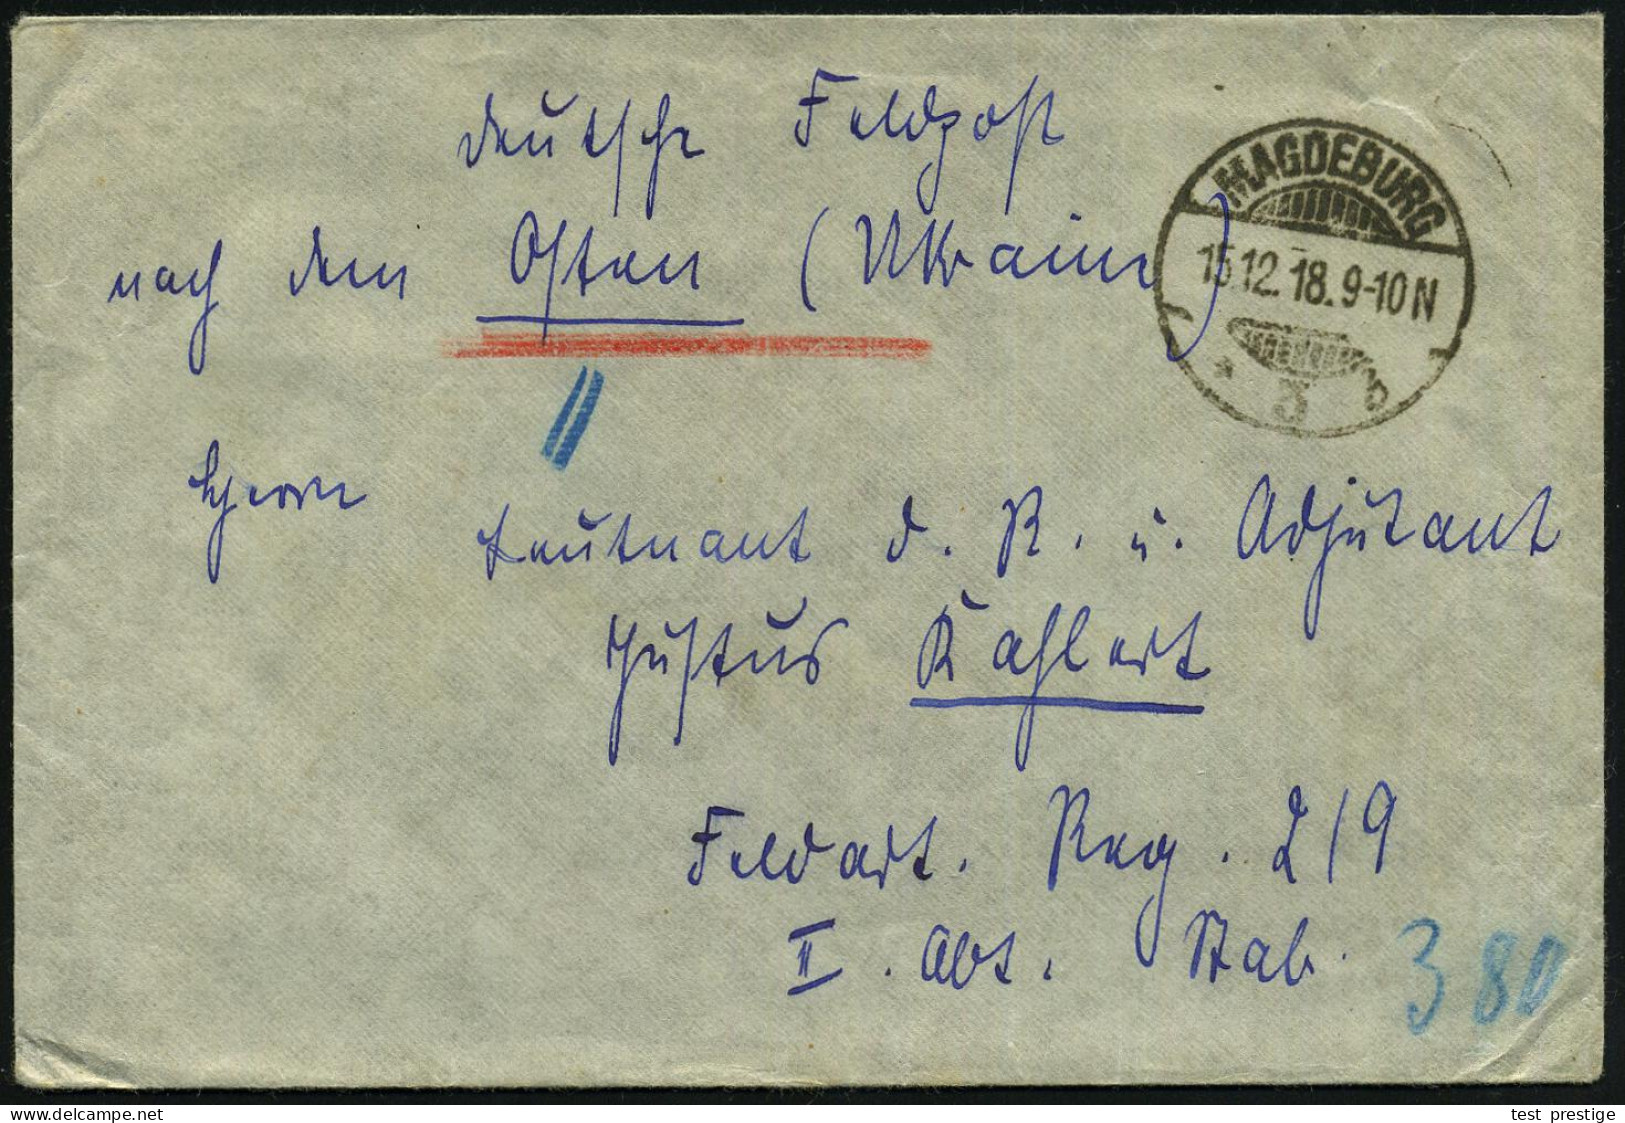 Deutsche Feldpost
nach dem Osten (Ukraine)
MAGDEBURG
15.12.18.9-10N
* 3 b
Herrn
Leutnant d. R. u. Adjutant
Justus Kahlert
Feldart. Reg. 219
II. Abt. Stab.
380
test prestige